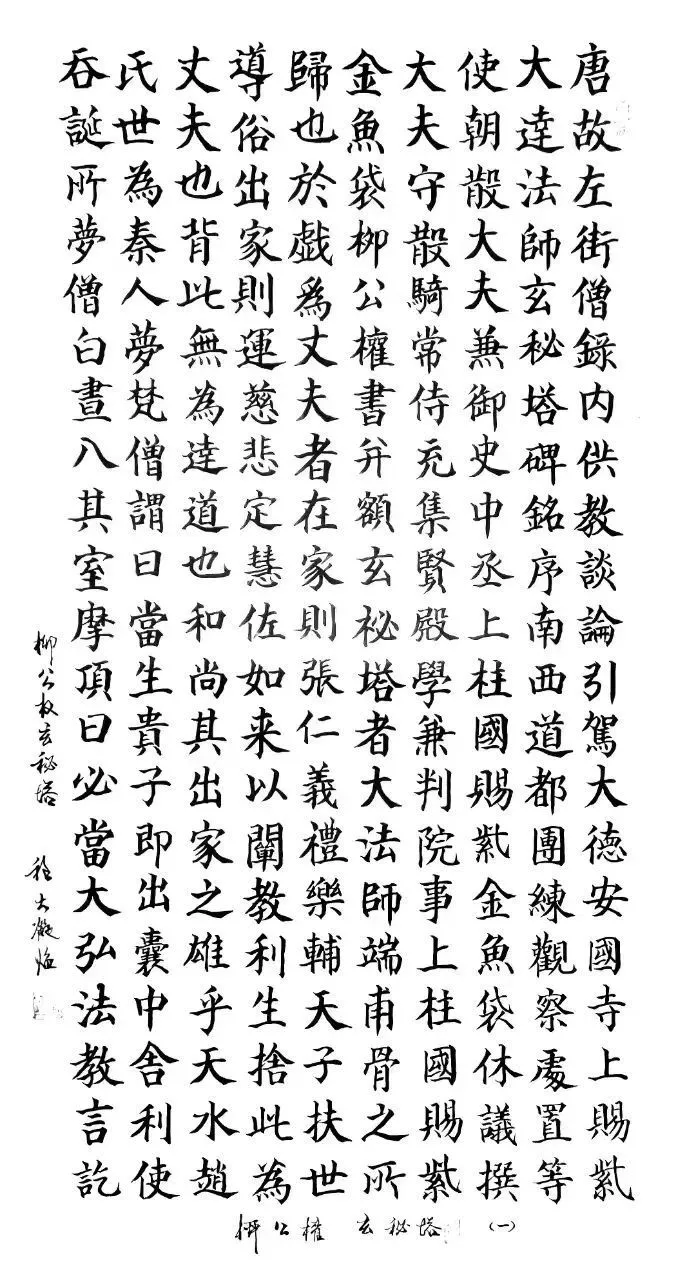 唐故左街僧錄内供教談論引駕大德安國寺上賜紫
大達法師玄秘塔碑銘序南西道都團練觀察處置等
使朝散大夫兼御史中丞上柱國賜紫金魚袋休議撰
大夫守散騎常侍充集賢殿學兼判院事上柱國賜紫
金魚袋柳公權書并額玄祕塔者大法師端甫骨之所
歸也於戲爲丈夫者在家則張仁義禮樂輔天子扶世
導俗出家則運慈悲定慧佐如来以闡教利生捨此為
丈夫也背此無為達道也和尚其出家之雄乎天水趙
氏世為秦人夢梵僧謂曰當生貴子即出囊中舍利使
吞誕所夢僧白晝入其室摩頂曰必當大弘法教言訖
柳公权玄秘塔
柳公權 玄秘塔 (一)